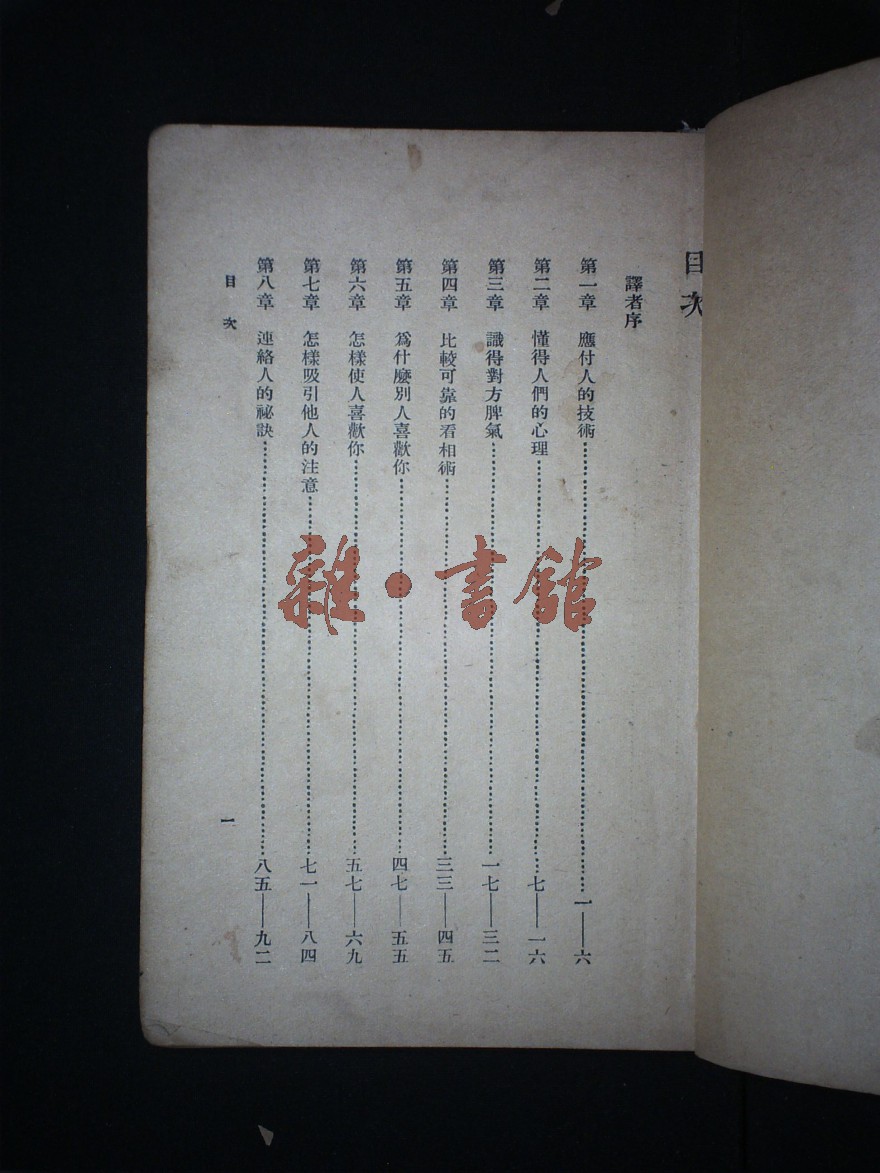 目次
譯者序
第一章 應付人的技術……一——六
第二章 懂得人們的心理……七——一六
第三章 識得對方脾氣……一七——三二
第四章 比較可靠的看相術……三三——四五
第五章 爲什麼別人喜歡你……四七——五五
第六章 怎樣使人喜歡你……五七——六九
第七章 怎樣吸引他人的注意……七一——八四
第八章 連絡人的祕訣……八五——九二
目次 一
雜·書館